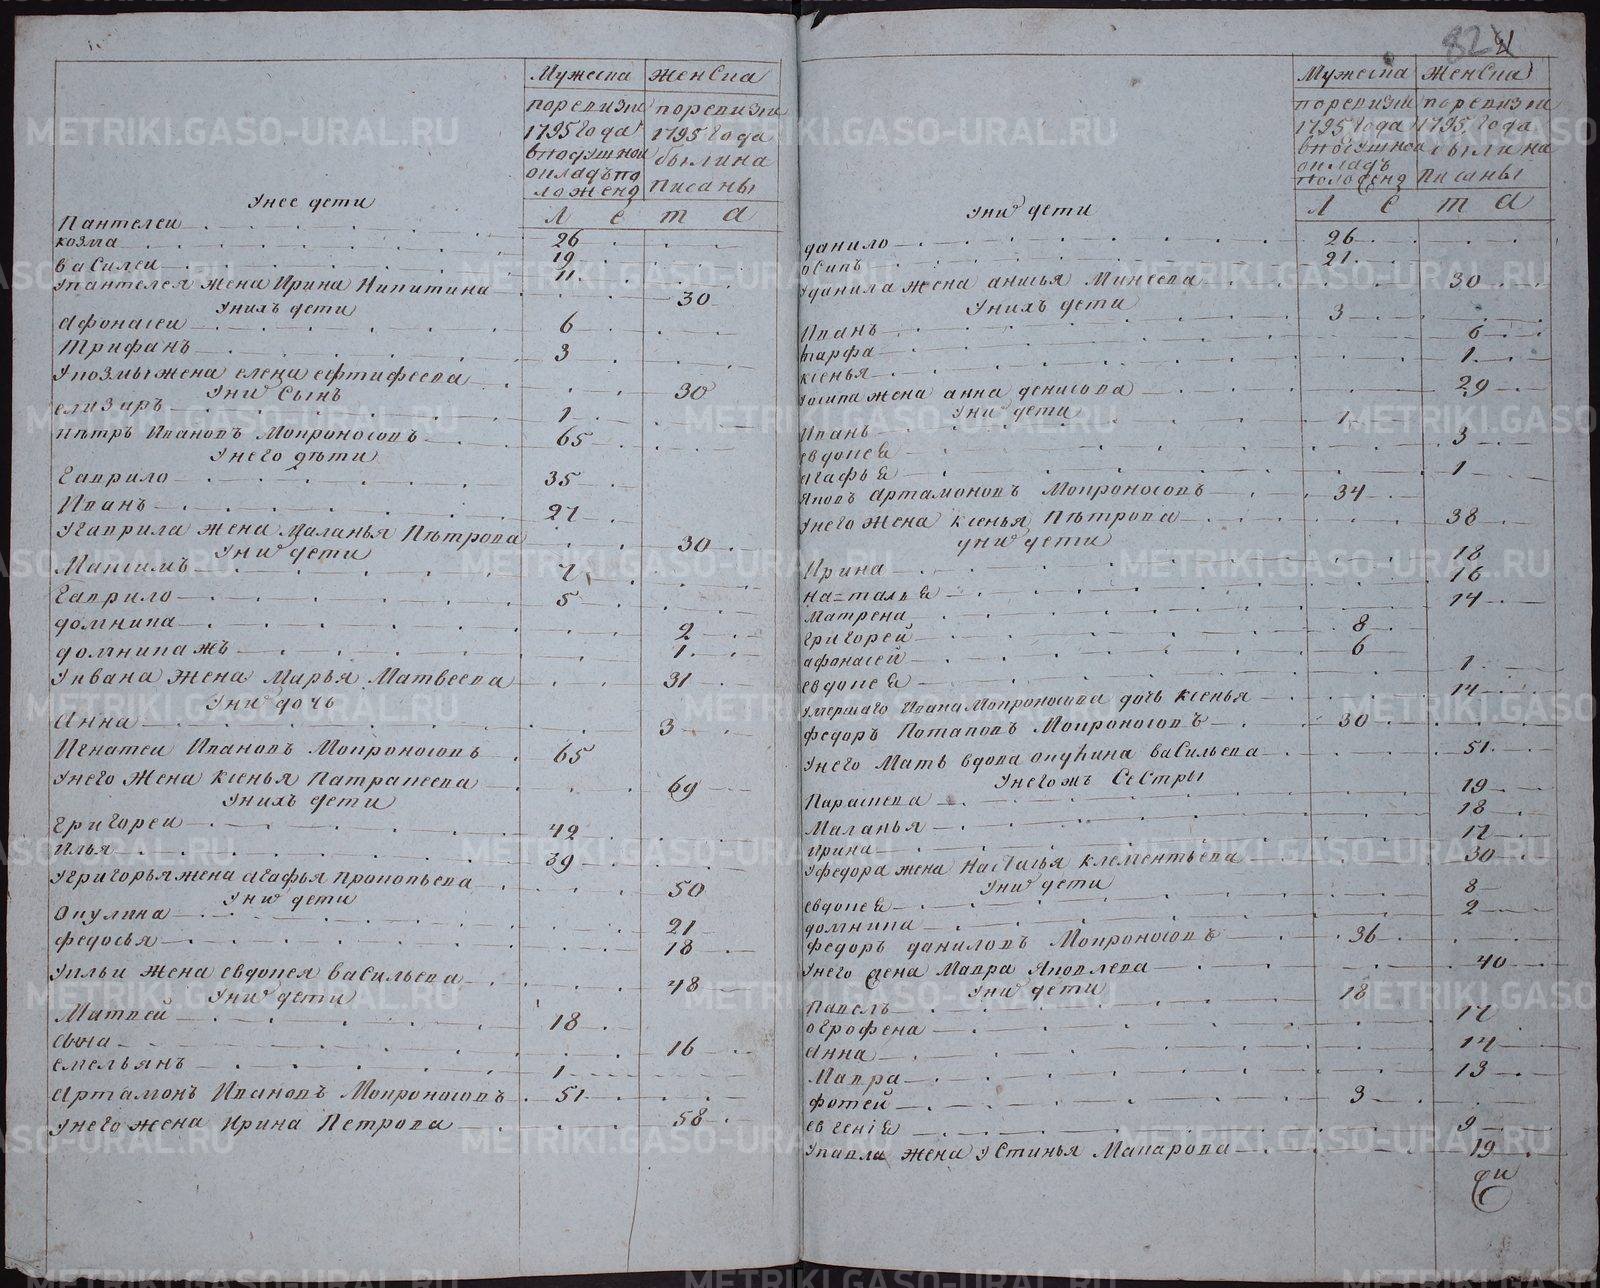 Мужеска Женска
поревизи поревизи
1795 года 1795 года
вподушной были на
окладъ по писаны
ложено
Л е т а
Унее дети
Пантелеи 26
козма 19
василеи 11
Упантелея жена Ирина Никитина 30
Унихъ дети
Афонасеи 6
Трифанъ 3
Укозмы жена елена ефтифеева 30
Уних Сынъ
елизаръ 1
Пѣтръ Ивановъ Мокроносовъ 65
Унего дѣти
Гаврило 35
Иванъ 27
Угаврила жена Маланья Пѣтрова 30
Уних дети
Максимъ 7
Гаврило 5
домника 2
домника жъ 1
Уивана жена Марья Матвеева 31
Уних дочь
Анна 3
Игнатеи Ивановъ Мокроносовъ 65
Унего жена ксенья Патракеева 69
Унихъ дети
Григореи 42
Илья 39
Угригорья жена агафья прокопьева 50
Уних дети
Окулина 21
федосья 18
Уильи жена евдокея васильева 48
Уних дети
Матвей 18
Анна 16
емельянъ 1
Артамонъ Ивановъ Мокроносовъ 51
Унего жена Ирина Петрова 58
82
Мужеска Женска
поревизи поревизи
1795 года 1795 года
вподушной были на
окладъ писаны
положено
Л е т а
Уних дети
данило 26
осипъ 21
Уданила жена анисья Микеева 30
Унихъ дети
Иванъ 3
марфа 6
ксенья 1
Уосипа жена анна денисова 29
Уних дети
Иванъ 1
евдокея 3
агафья 1
Яковъ Артамоновъ Мокроносовъ 34
Унего жена ксенья Пѣтрова 38
уних дети
Ирина 18
на=талья 16
Матрена 14
Григорей 8
афонасей 6
евдокея 1
Умершаго Ивана Мокроносова дочь ксенья 14
федоръ Потаповъ Мокроносовъ 30
Унего Мать вдова окулина васильева 51
Унегожъ Сестры
Парасковья 19
Маланья 18
ирина 17
Уфедора жена Настасья клементьева 30
Уних дети
евдокея 8
домника 2
федоръ даниловъ Мокроносовъ 36
Унего жена Мавра Яковлева 40
Уних дети
Павелъ 18
огрофена 17
Анна 14
Мавра 13
фотей 3
евгенія 9
Упавла жена устинья Макарова 19